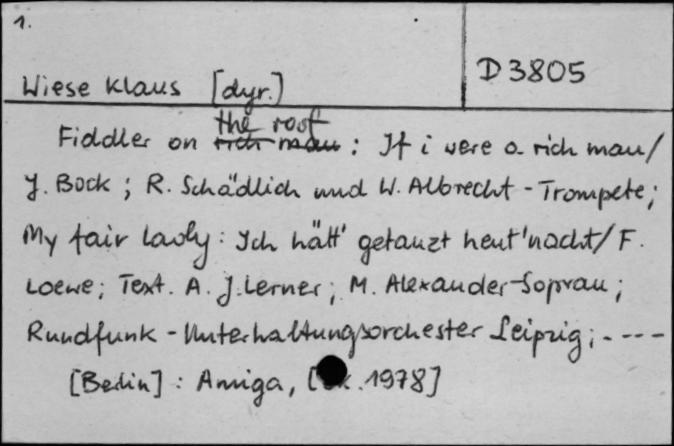 1.
D 3805
Wiese Klaus [dyr.)
the roof
Fiddler on rich man : If i were a rich man/
J. Bock ; R. Schädlich und W. Albrecht - Trompete ;
My fair Lady : Ich hätt' getanzt heut' nacht / F.
Loewe ; Text. A. J. Lerner ; M. Alexander-Sopran ;
Rundfunk - Unterhaltungsorchester Leipzig ; - - - -
[Berlin] : Amiga, [ok. 1978]